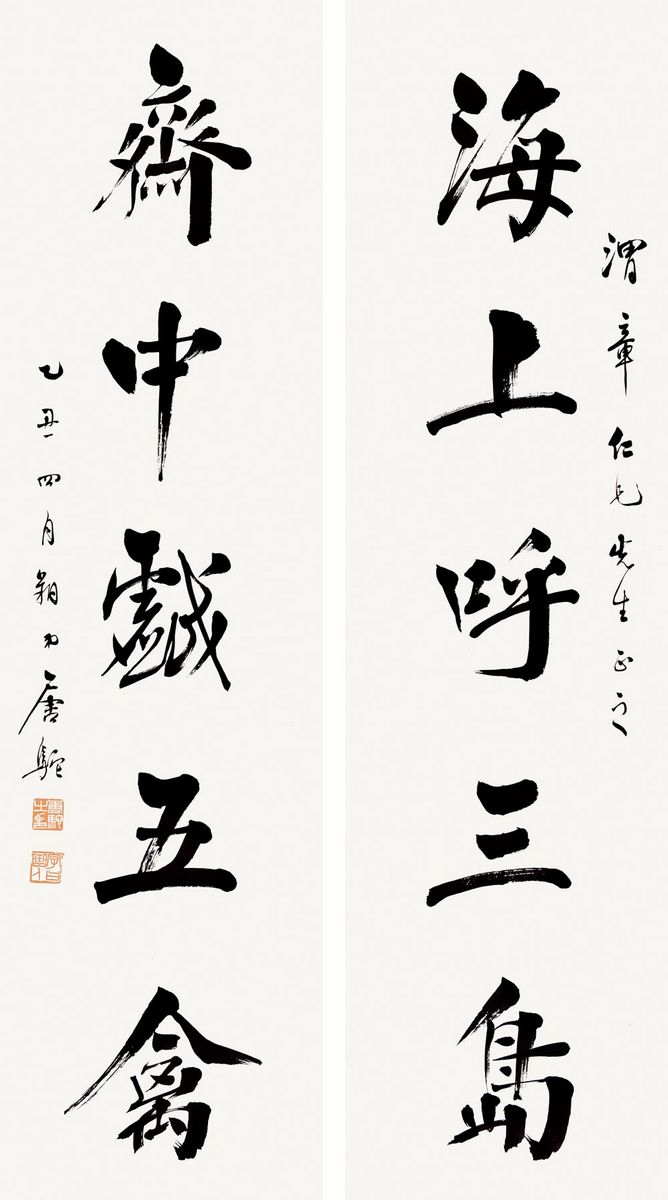 渭章仁兄先生正之
海上呼三島
齋中戲五禽
乙丑四月唐駝